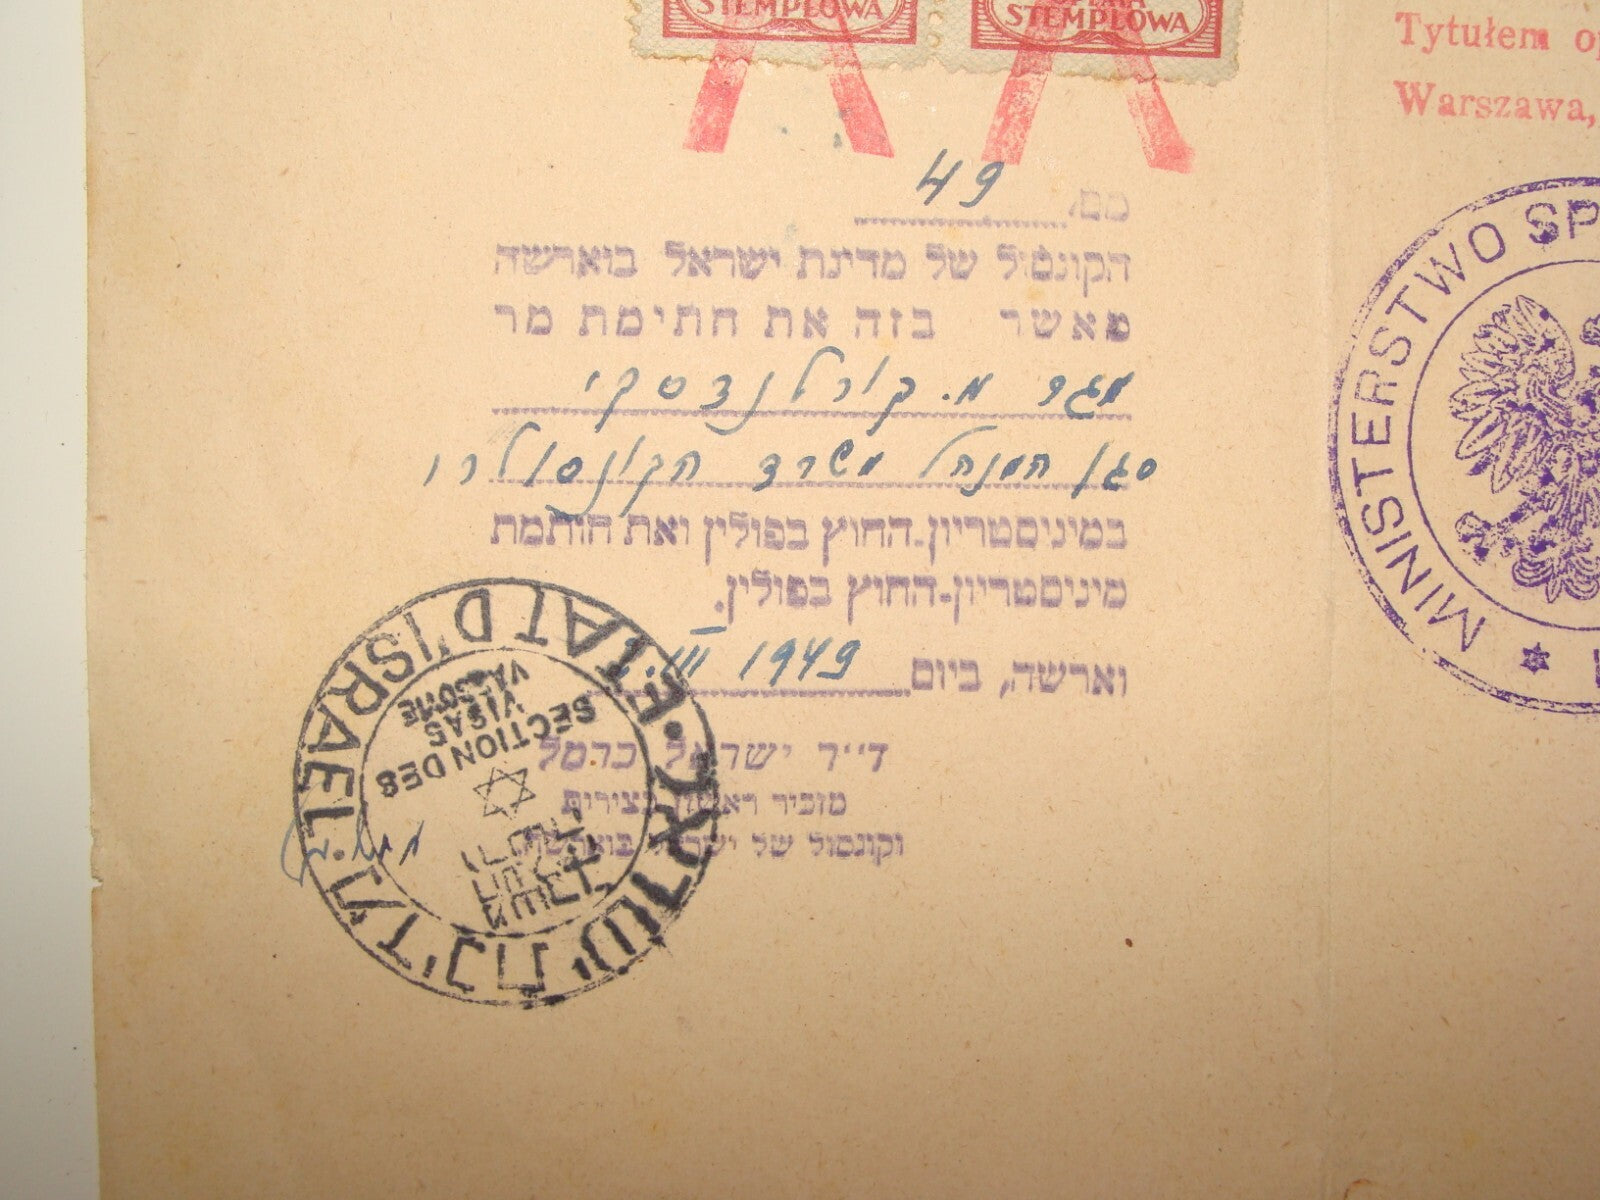 STEMPLOWA
STEMPLOWA
Tytułem
Warszawa,
מס׳ 49
הקונסול של מדינת ישראל בוארשה
מאשר בזה את חתימת מר
מגר מ. קורלנדסקי
סגן המנהל משרד הקונסולרי
במיניסטריון-החוץ בפולין ואת חותמת
מיניסטריון-החוץ בפולין.
וארשה, ביום III 1949
ד״ר ישראל כרמל
מזכיר ראשון בצירות
וקונסול של ישראל בוארשה
ETAT D'ISRAEL
מדינת ישראל
SECTION DES
VISAS
VARSOVIE
MINISTERSTWO SP